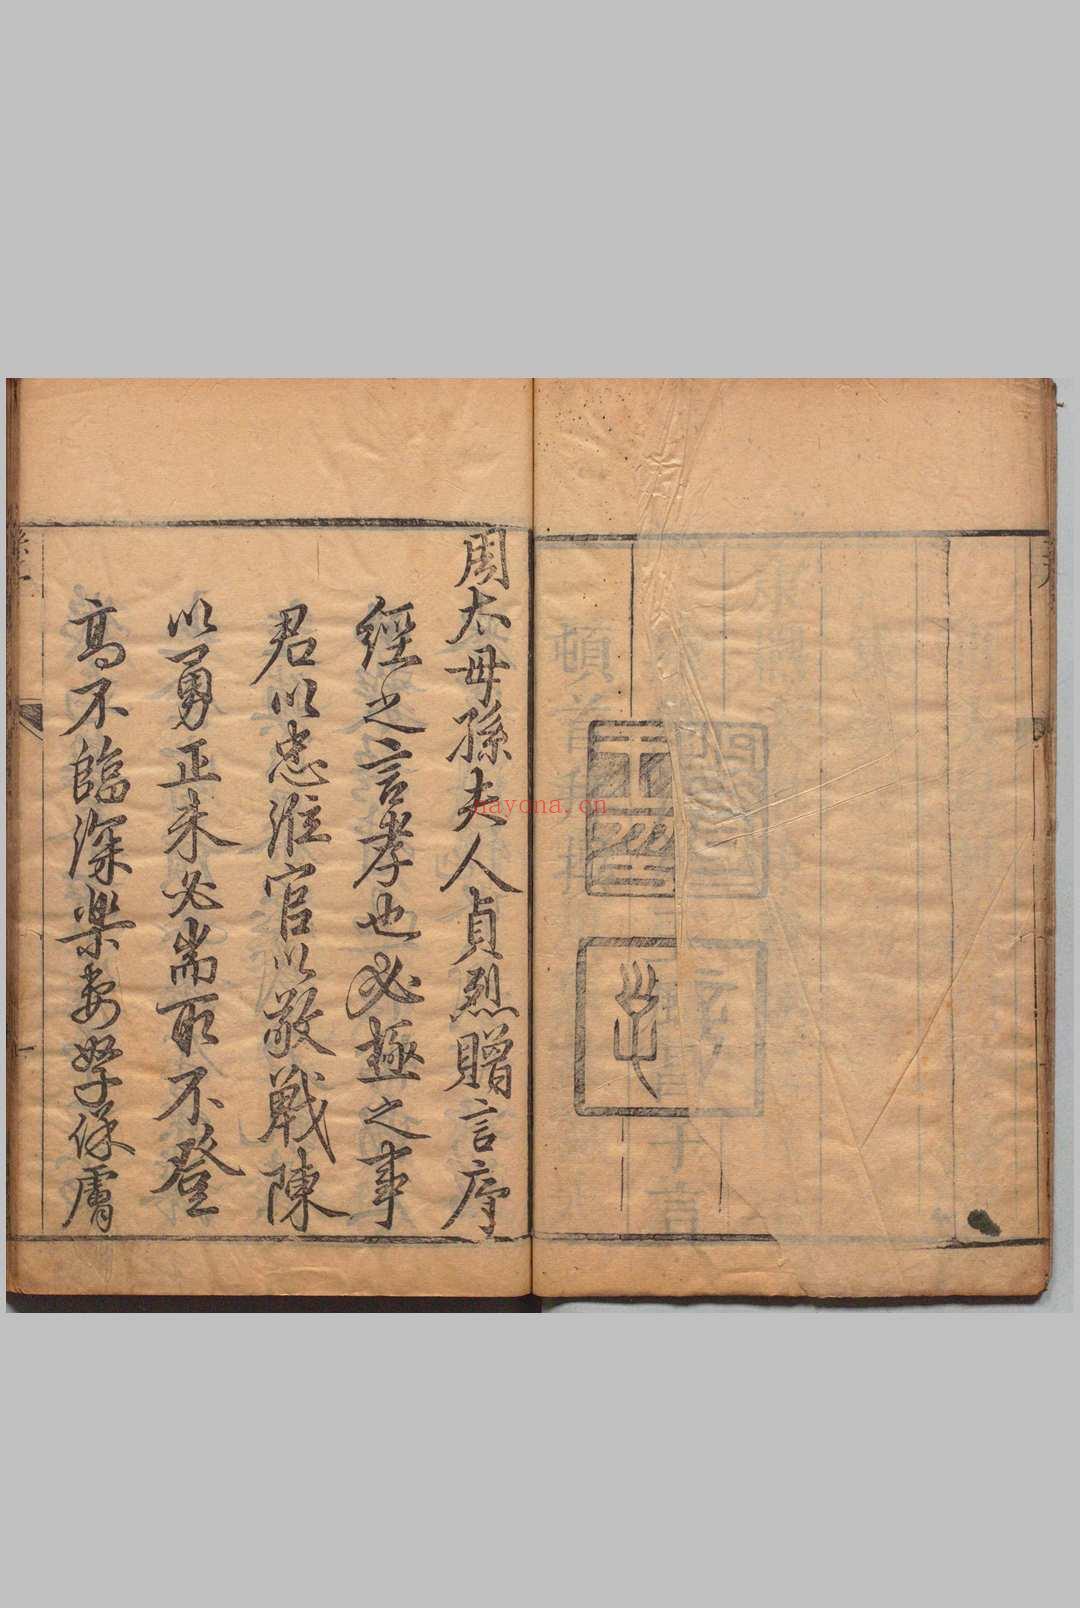 頓首
周太母孫夫人貞烈贈言序
經之言孝也必極之事
君以忠涖官以敬戰陳
以勇正未必耑取不登
高不臨深樂妻孥保膚
nayona.cn